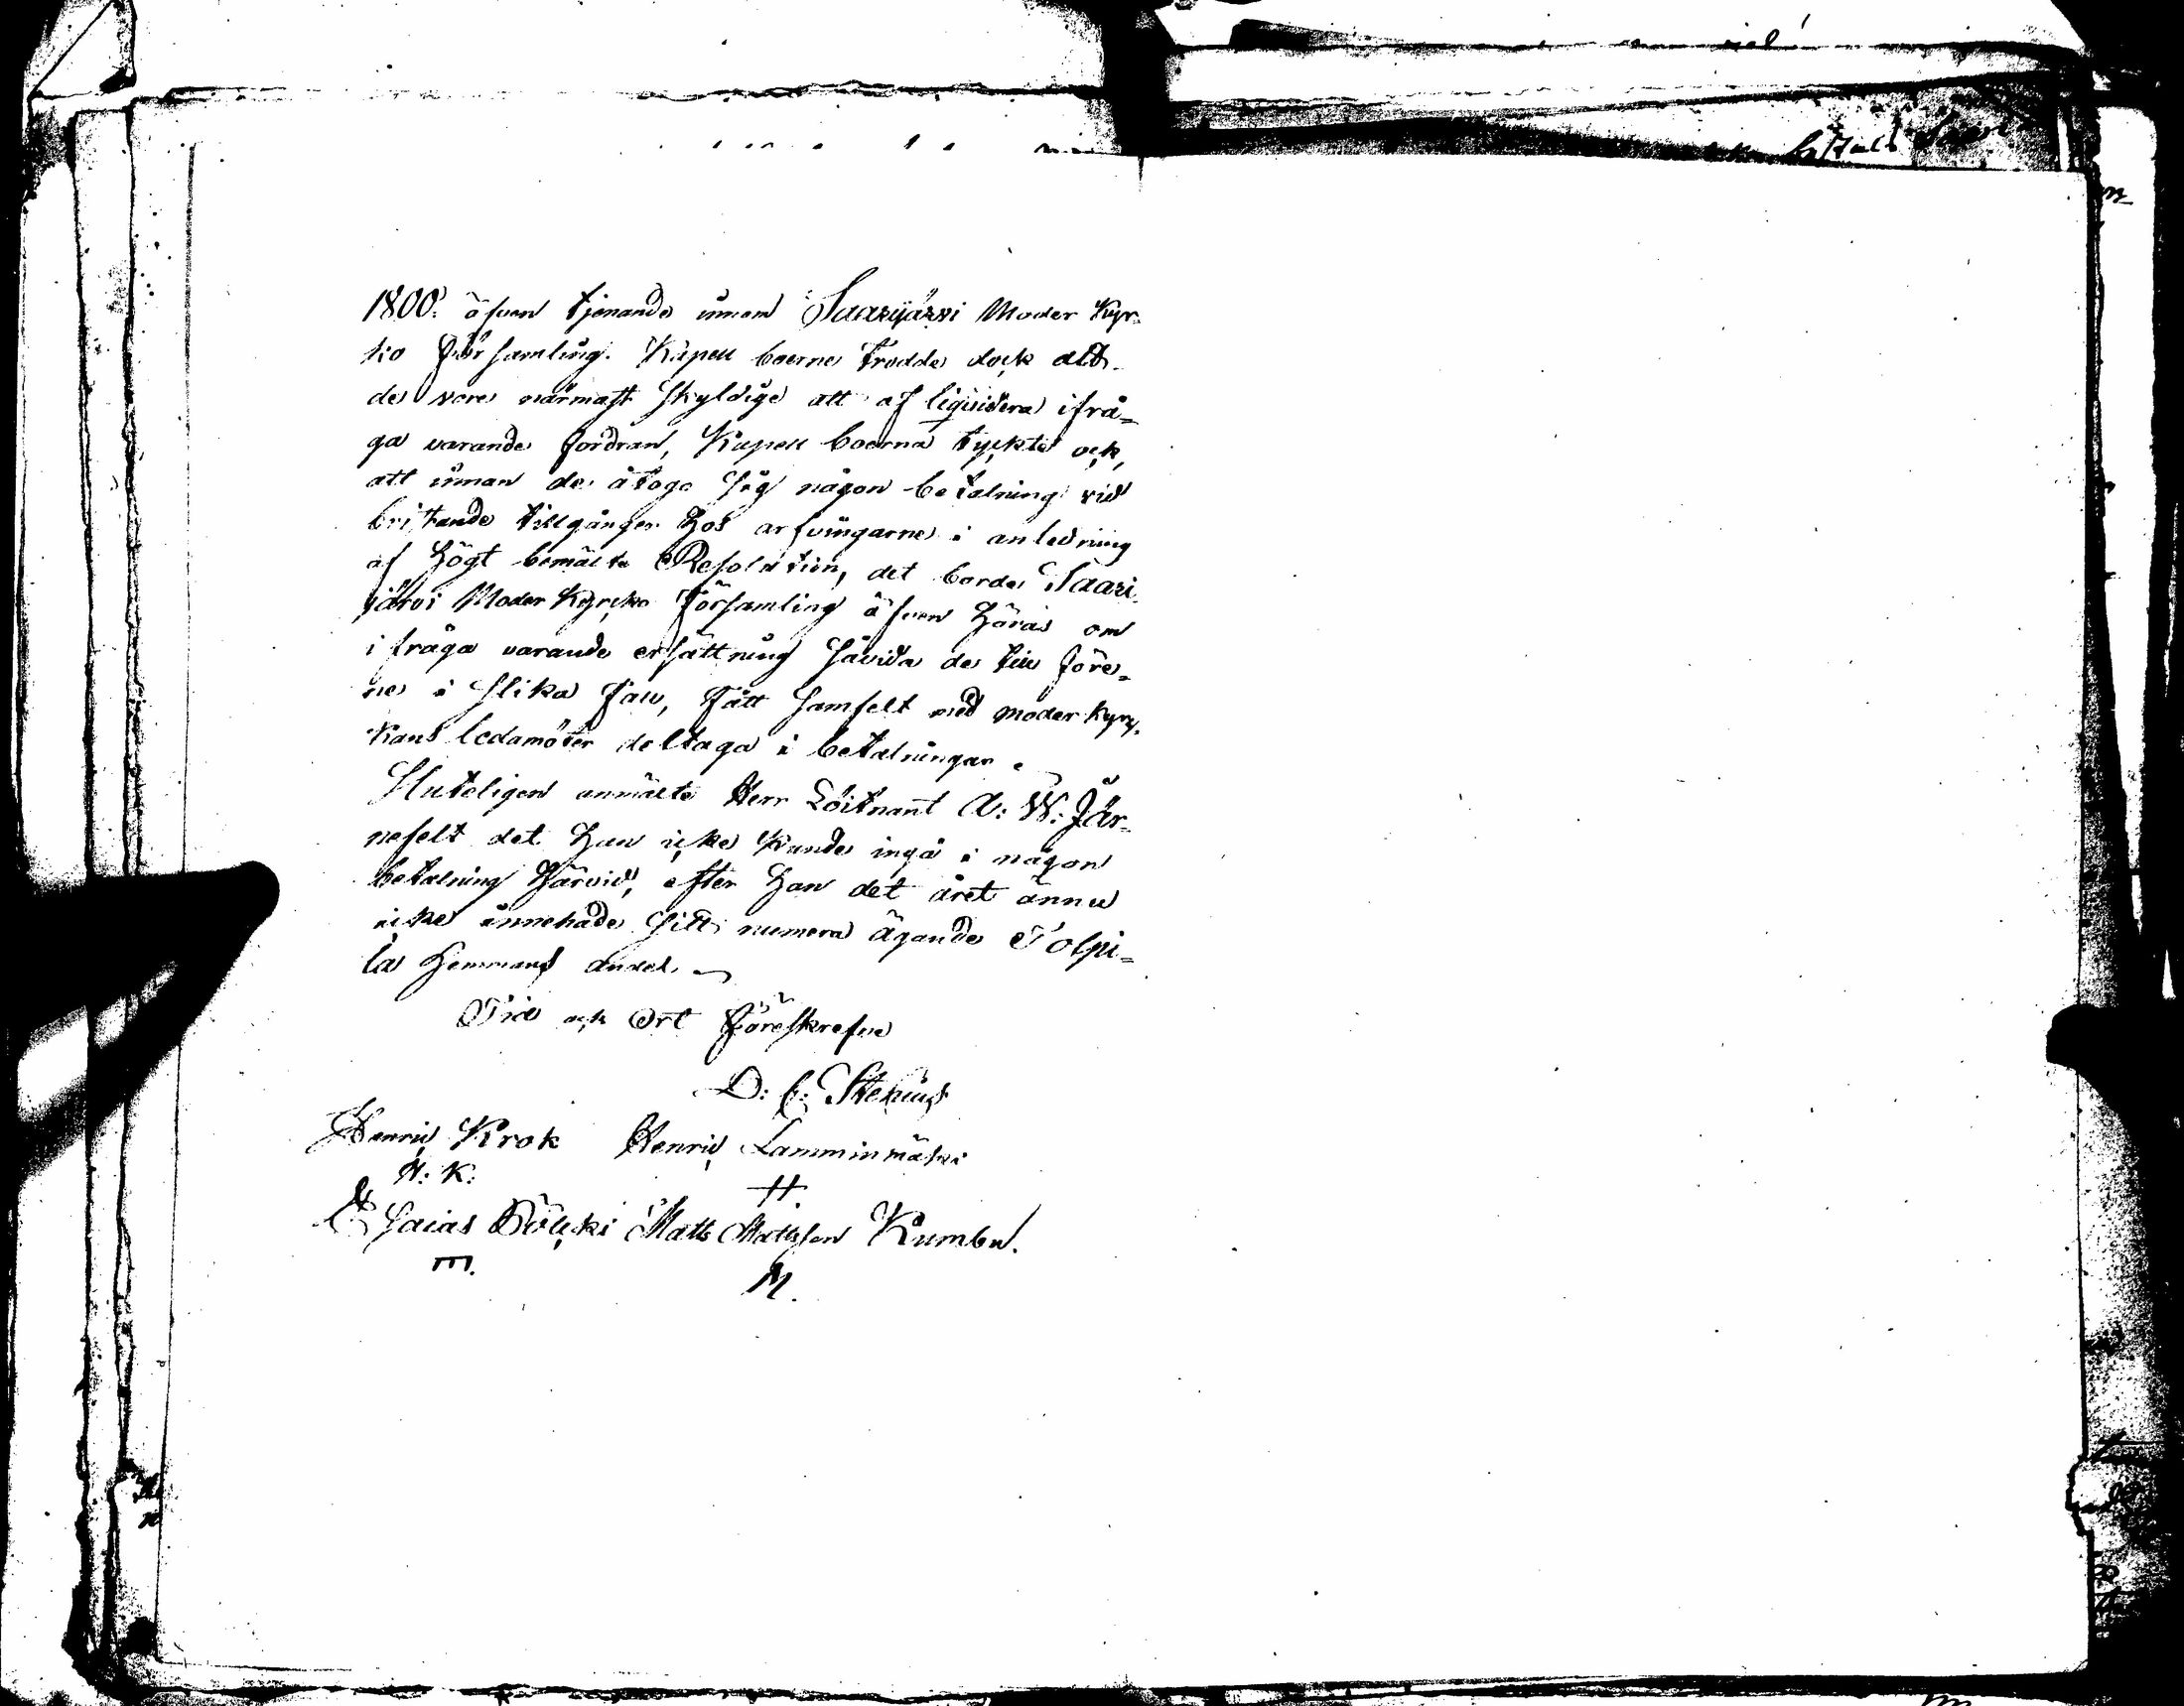 1800. äfven tjenande innom Saarijärvi Moder Kyr-
ko Församling. Kapell boerne trodde dock att
de vore närmast skyldige att af liquidera ifrå-
ga varande fordran, Kapell boerna tyckte ock,
att innan de åtogo sig någon betalning vid
bristande tillgånger hos arfvingarne i anledning
af högt bemälte Resolution, det borde Saari-
järvi Moder Kyrcko Församling äfven höras om
i fråga varande ersättning såvida de till före-
ne i slika fall, fått samfelt med moder kyrc-
kans ledamöter deltaga i betalningar.
Sluteligen anmälte Herr Löitnant A: W: Jär-
nefelt det han icke kunde ingå i någon
betalning härvid, efter han det året ännu
icke innehade sitt numera ägande Tolpi-
la Hemmans andel.
Tid och Ort Föreskrefne
D: C: Stenius
Henric Krok Henric Lamminmäki
H: K:
Esaias Pölcki Matts Mattsson Kumbu.
E. M.